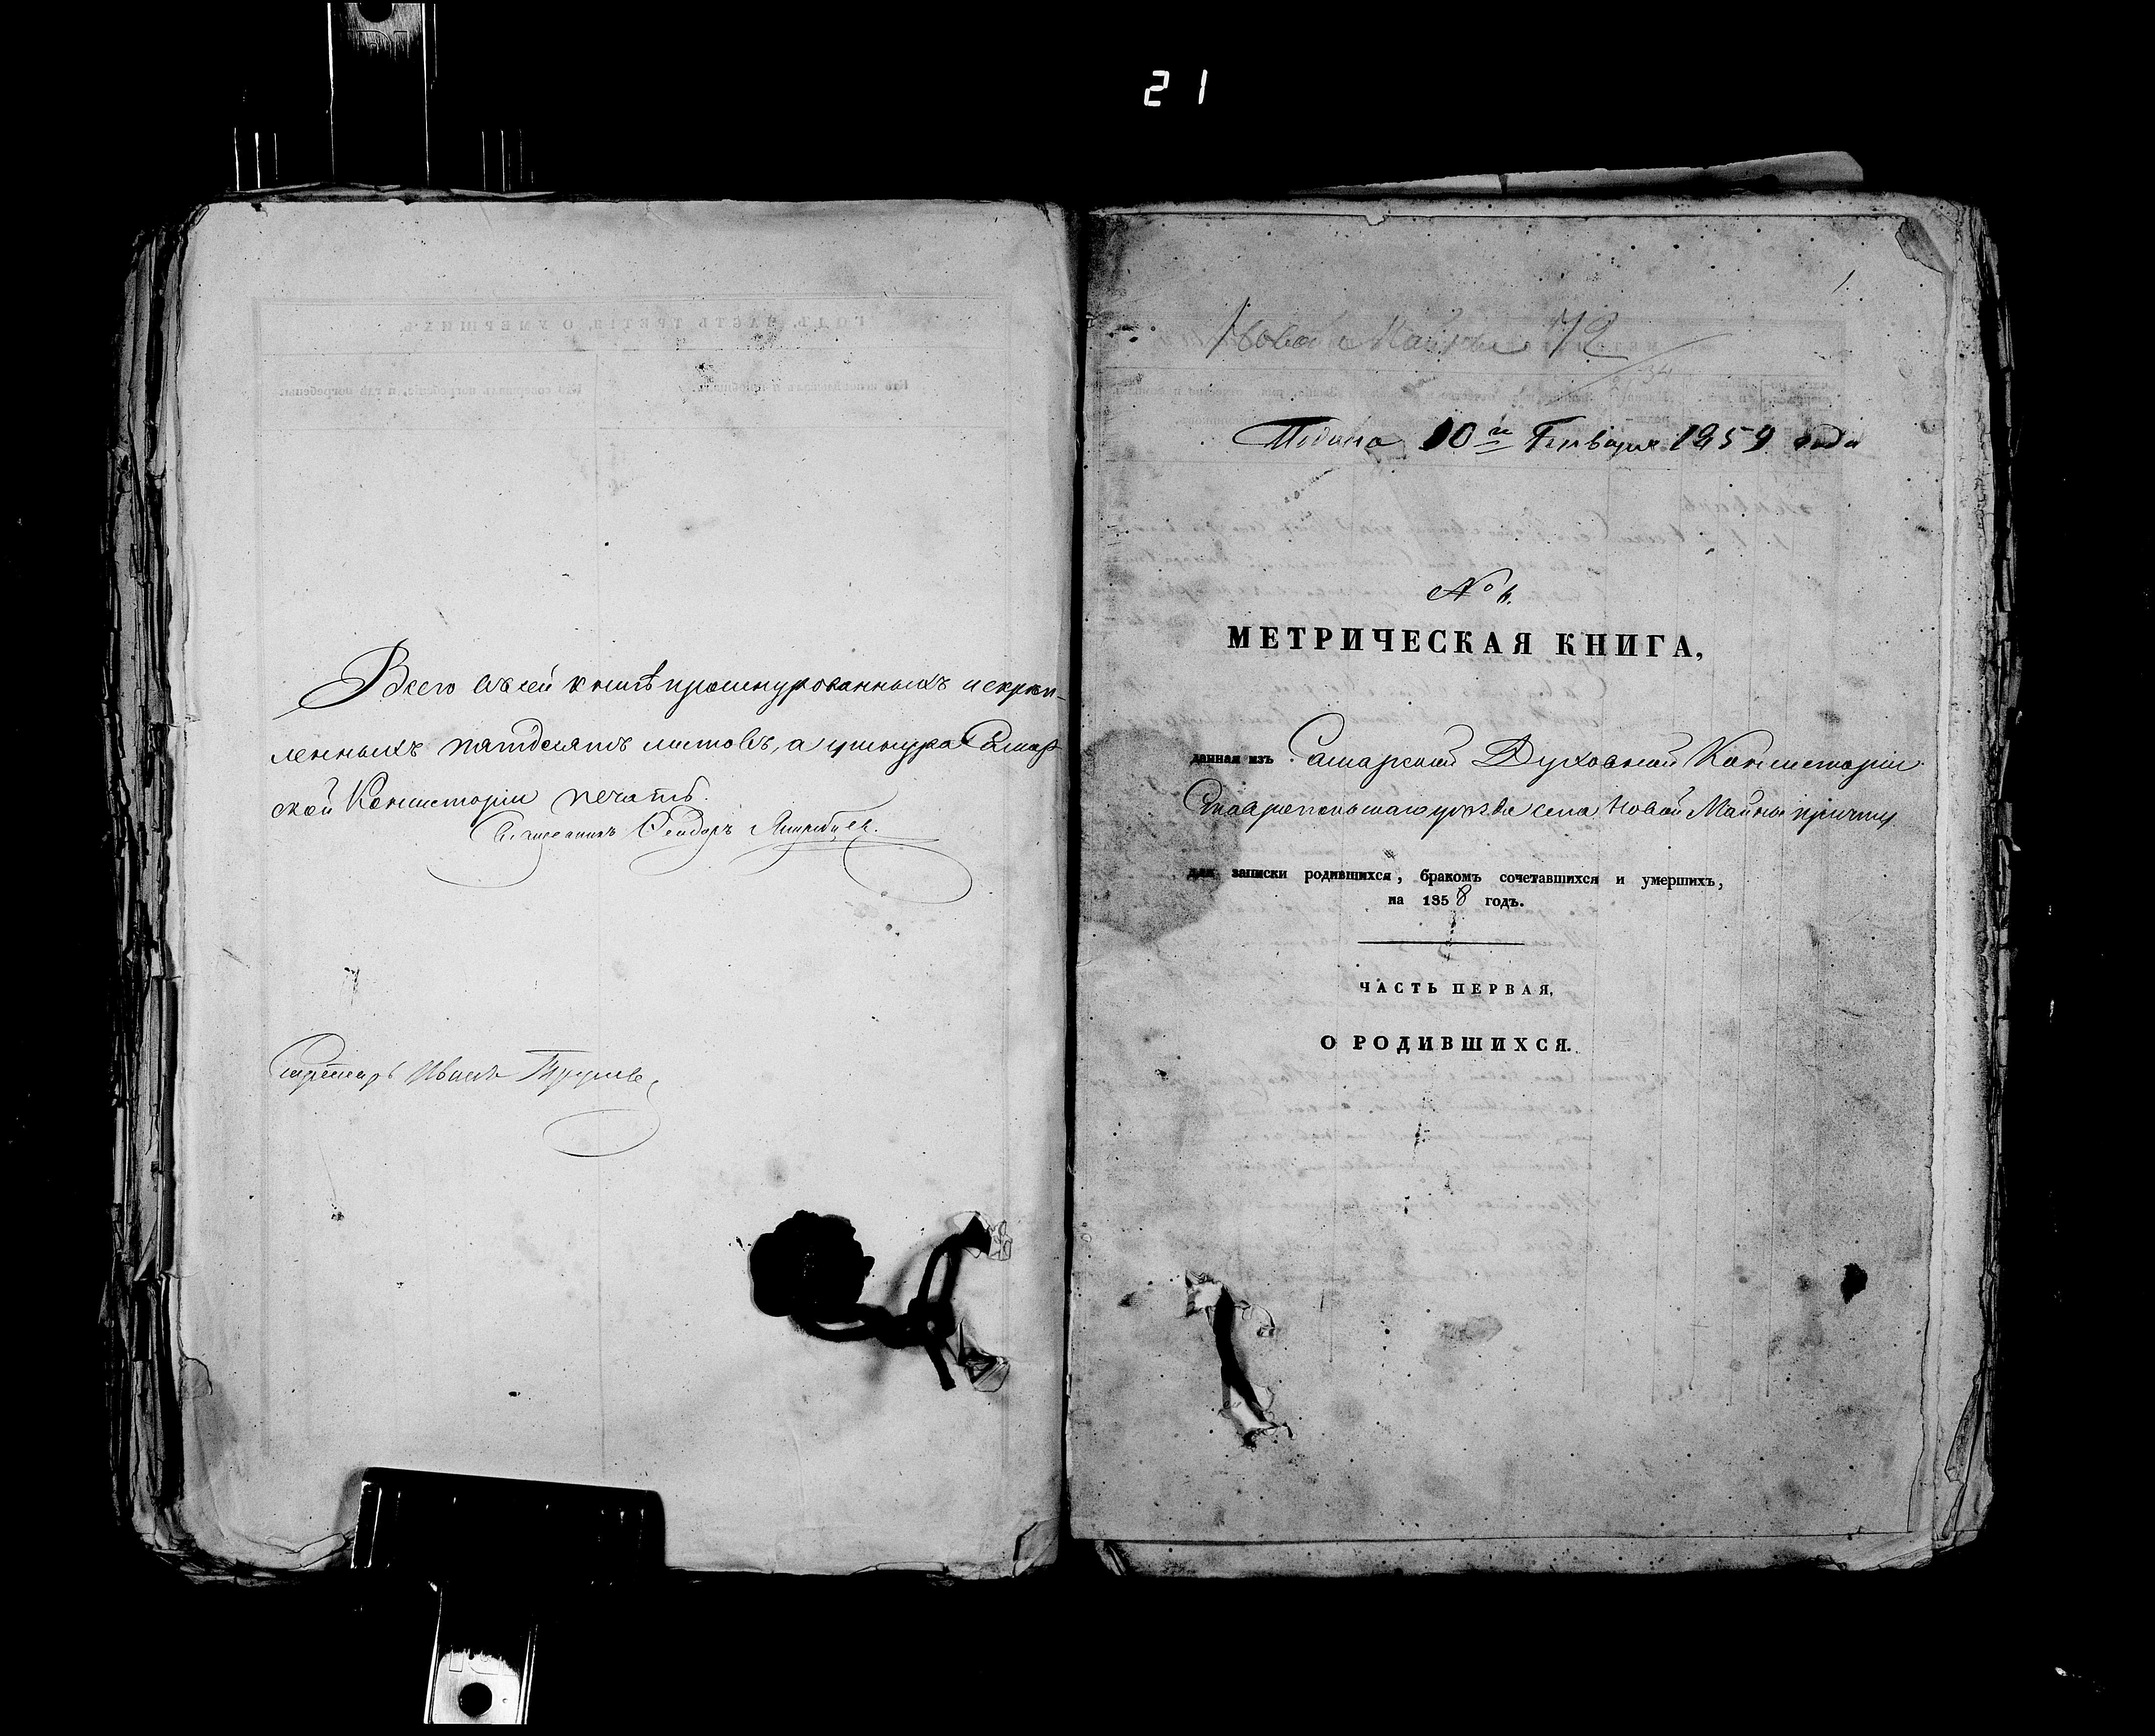 21
Всего въ сей книгѣ прошнурованныхъ и скрѣп-
ленныхъ пятдесятъ листовъ, а у шнура Самар
ской Консисторіи печать.
Священникъ Ѳеодоръ
Секретарь Иванъ
1.
Новой Майны 72
34
Подана 10й Генваря 1859 года
№
МЕТРИЧЕСКАЯ КНИГА,
данная изъ Самарской Духовной Консисторіи
Ставропольскаго уѣзда села Новой Майны причту
для записки родившихся, бракомъ сочетавшихся и умершихъ,
на 1858 годъ.
ЧАСТЬ ПЕРВАЯ,
О РОДИВШИХСЯ.